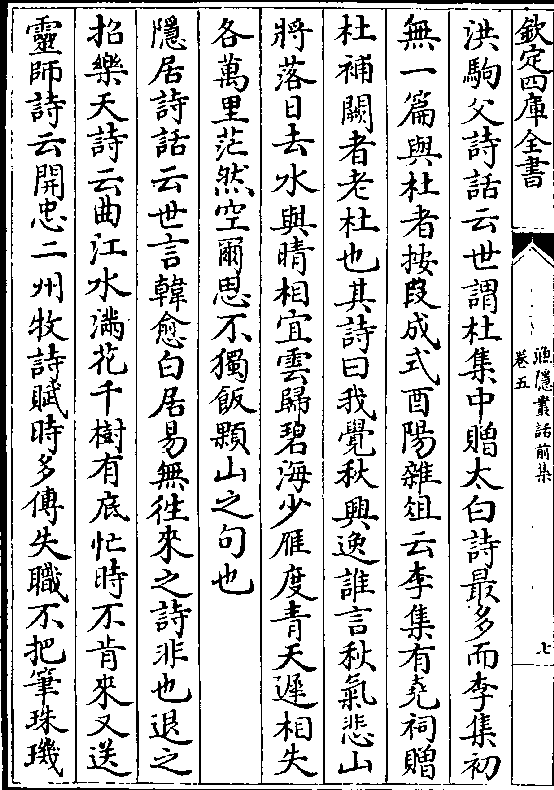 欽定四庫全書
漁隱叢話前集
卷五
七
洪駒父詩話云世謂杜集中贈太白詩最多而李集初
無一篇與杜者按段成式酉陽雜俎云李集有堯祠贈
杜補闕者老杜也其詩曰我覺秋興逸誰言秋氣悲山
將落日去水與晴相宜雲歸碧海少雁度青天遲相失
各萬里茫然空爾思不獨飯顆山之句也
隱居詩話云世言韓愈白居易無徃來之詩非也退之
招樂天詩云曲江水滿花千樹有底忙時不肯來又送
靈師詩云開忠二州牧詩賦時多傳失職不把筆珠璣